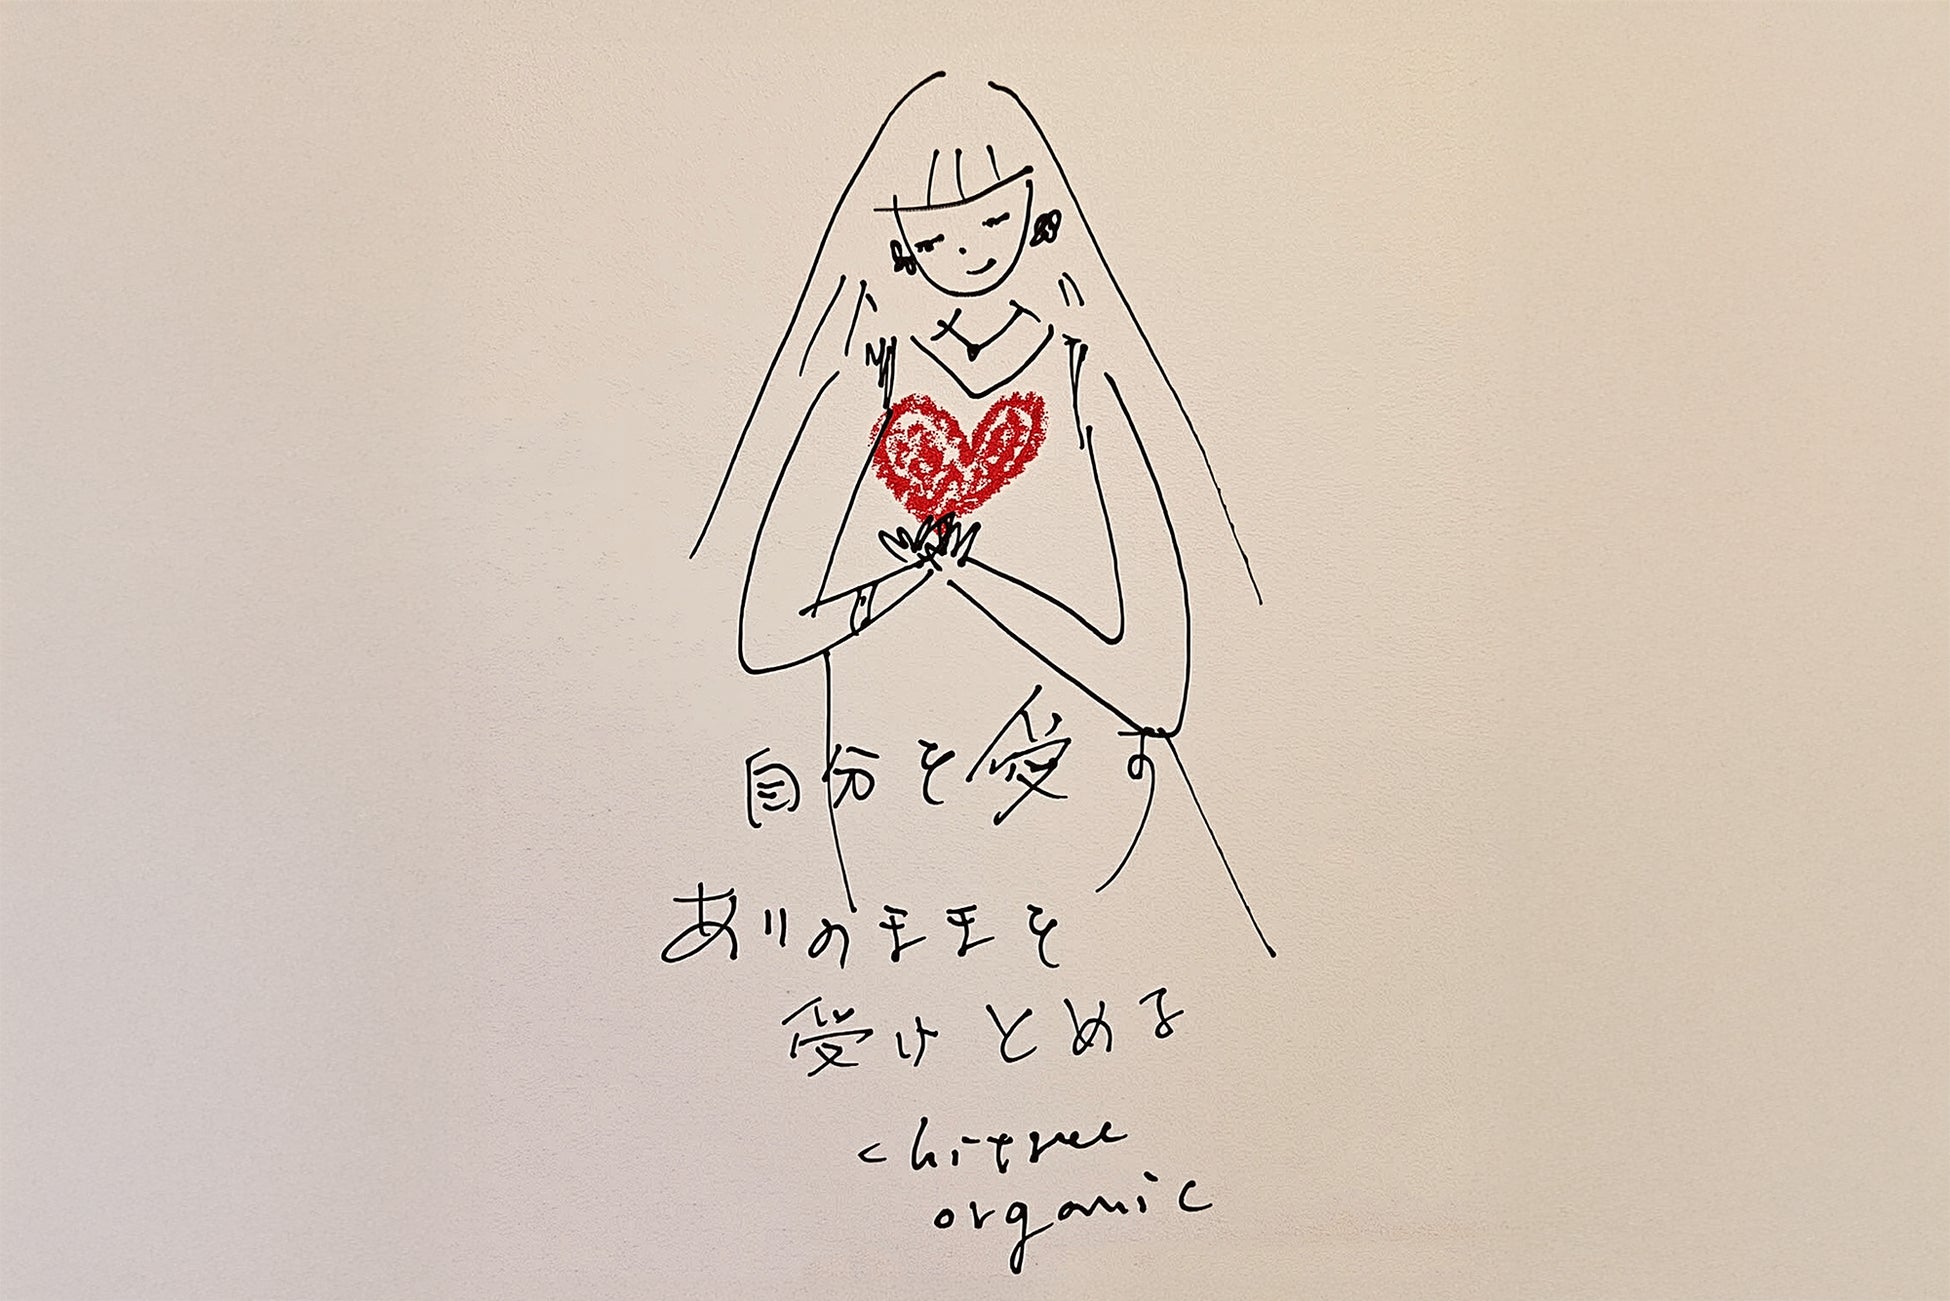 自分を愛す
ありのままを
受けとめる
chitree
organic